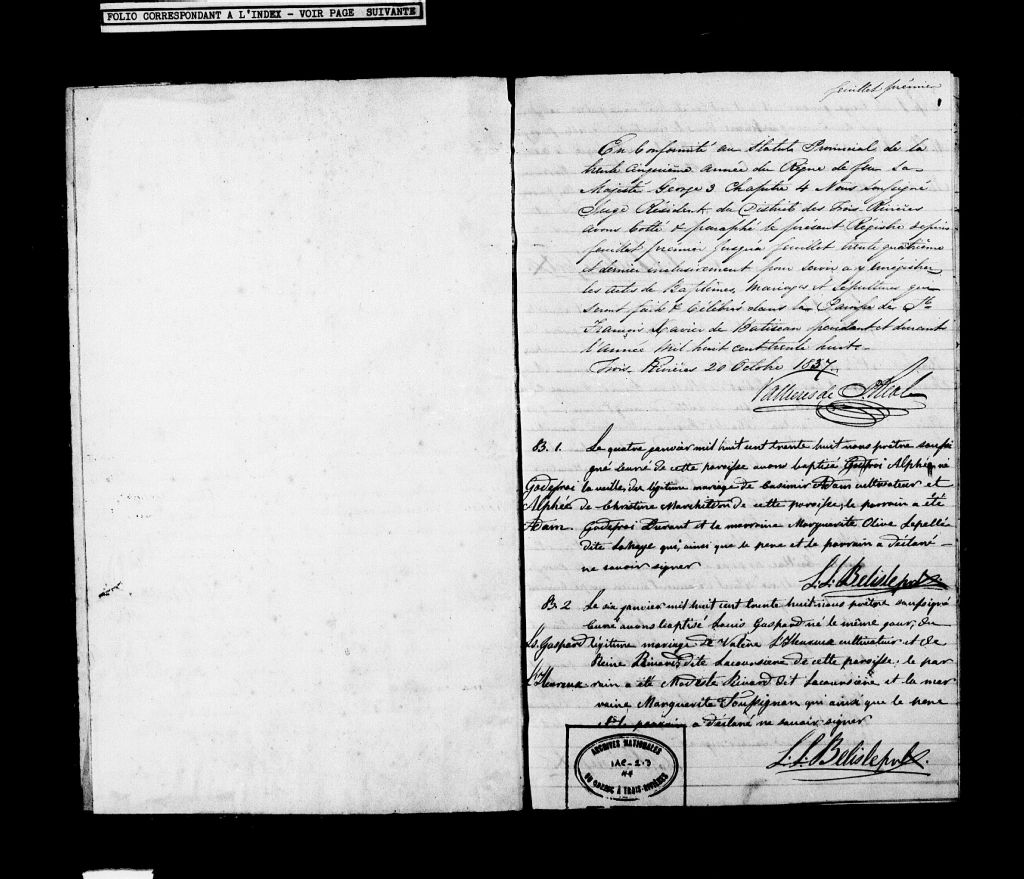 FOLIO CORRESPONDANT A L'INDEX - VOIR PAGE SUIVANTE
feuillet prémier
En Conformité au Statute Provincial de la
trente cinquième année du Règne de feu Sa
Majesté George 3 Chapitre 4 Nous Soussigné
Juge Résident du District des Trois Rivières
avons Cotté & paraphé le présent Régistre depuis
feuillet premier jusqu'à feuillet trente quatrième
et dernier inclusivement pour servir a y enrégistrer
les actes de Baptêmes, Mariages et Sepultures qui
seront fait & Célébrés dans la Paroisse de St.
François Xavier de Batiscan pendant et durant
l'Année Mil huit cent trente huit.
Trois Rivières 20 Octobre 1837.
Vallieres de St Real
B. 1. Le quatre janvier mil huit cent trente huit nous prêtre soussi
gné Curé de cette paroisse avons baptisé Godfroi Alphé né
Godefroi la veille, du légitime mariage de Casimir Adam cultivateur et
Alphée de Christine Marchildon de cette paroisse, le parrain a été
Adam Godefroi Durant et la marraine Marguerite Olive Lepellé
dite Lahaye qui, ainsi que le pere et le parrain a déclaré
ne savoir signer
L. L. Belisle ptre
B. 2 Le six janvier mil huit cent trente huit nous prêtre soussigné
Curé avons baptisé Louis Gaspard né le même jour, du
Ls. Gaspard légitime mariage de Valère L'Heureux cultivateur et de
Reine Rivard, dite Lacoursière de cette paroisse, le par
L'Heureux rain a été Modeste Rivard dit Lacoursière et la mar
raine Marguerite Toussignan qui ainsi que le pere
et le parrain a déclaré ne savoir signer
L. L. Belisle ptre.
ARCHIVES NATIONALES
IAC-213
44
DU QUÉBEC À TROIS-RIVIÈRES